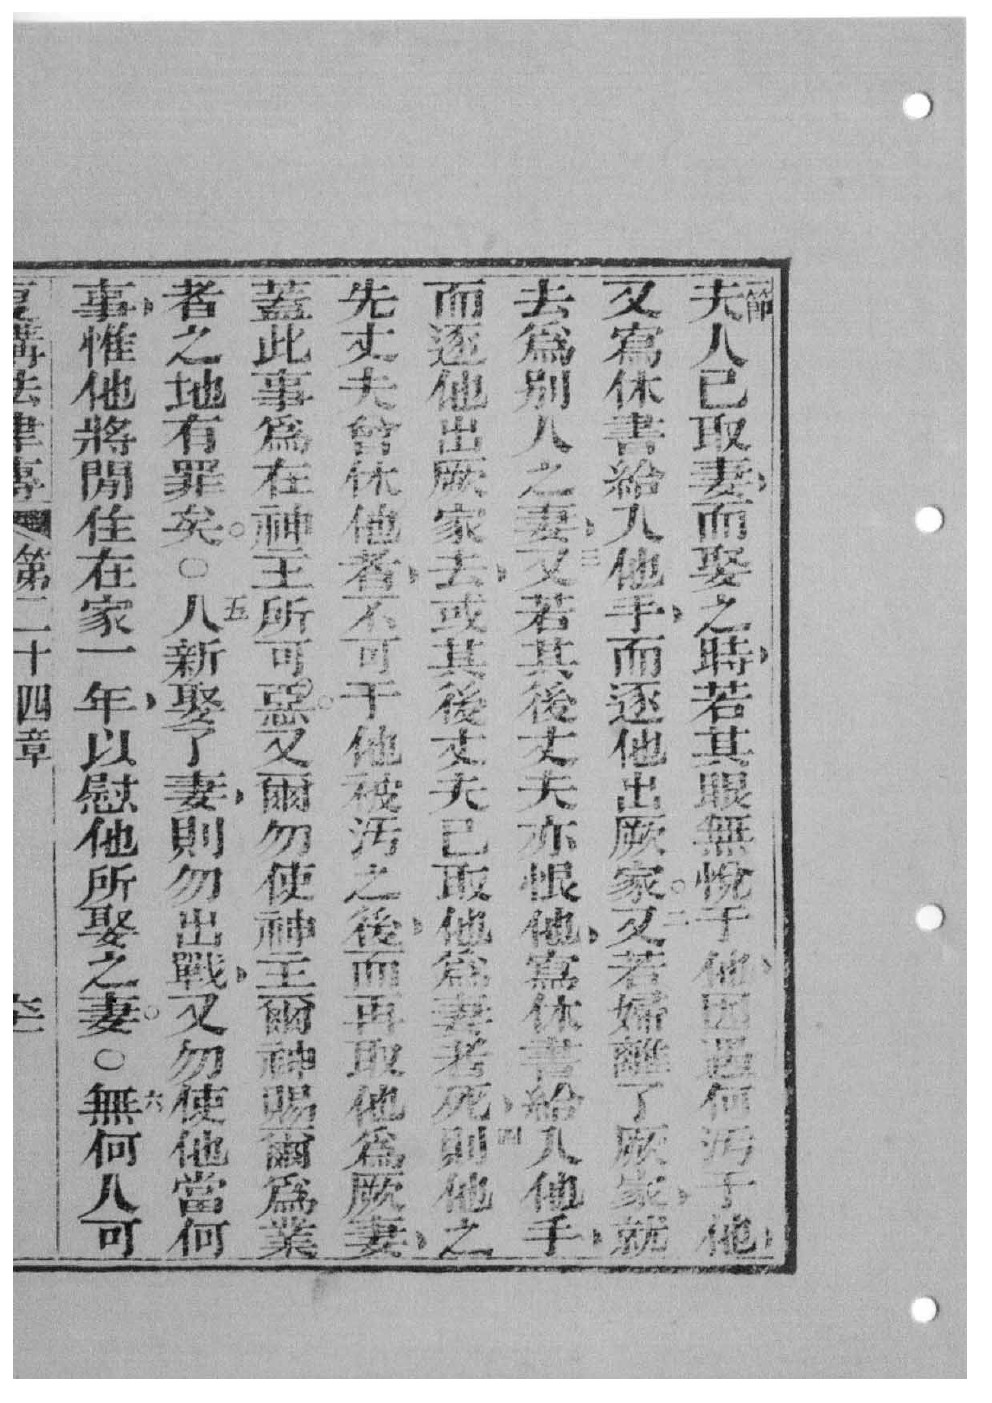 一節夫人已取妻而娶之時若其眼無悅于他因遇何汚于他
又寫休書給入他手而逐他出厥家二又若婦離了厥家就
去爲別人之妻三又若其後丈夫亦恨他寫休書給入他手
而逐他出厥家去或其後丈夫已取他爲妻者死四則他之
先丈夫曾休他者不可于他被汚之後而再取他爲厥妻
蓋此事爲在神主所可惡又爾勿使神主爾神賜爾爲業
者之地有罪矣○五人新娶了妻則勿出戰又勿使他當何
事惟他將閒住在家一年以慰他所娶之妻○六無何人可
復講法律書 第二十四章